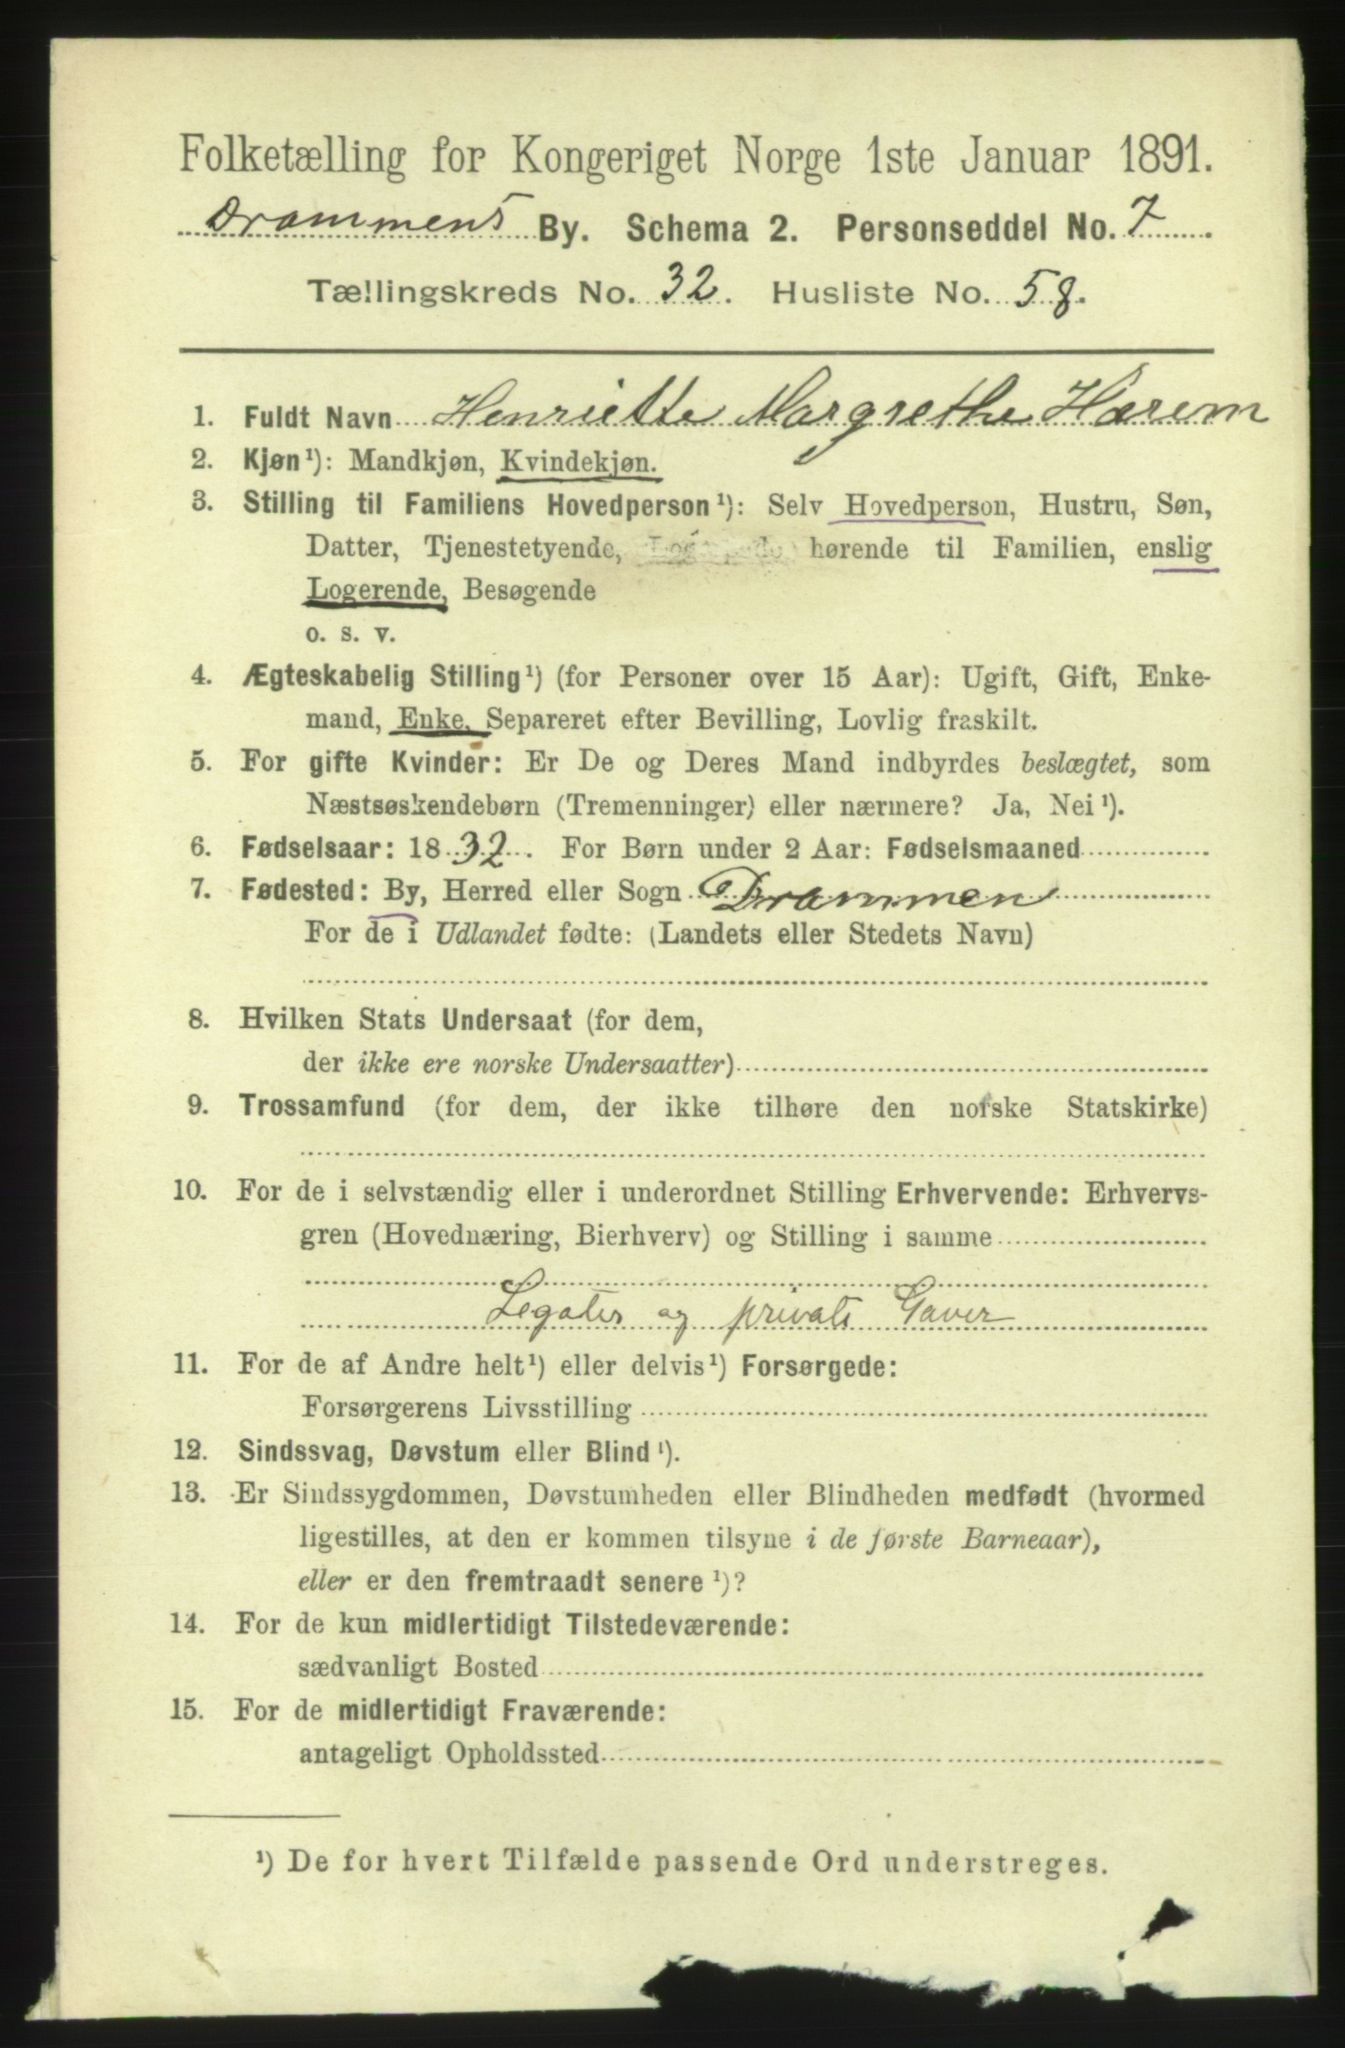 Folketælling for Kongeriget Norge 1ste Januar 1891.
Drammens By. Schema 2. Personseddel No. 7
Tællingskreds No. 32. Husliste No. 58.
1. Fuldt Navn Henriette Margrethe Harem
2. Kjøn¹): Mandkjøn, Kvindekjøn.
3. Stilling til Familiens Hovedperson¹): Selv Hovedperson, Hustru, Søn,
Datter, Tjenestetyende, hørende til Familien, enslig
Logerende, Besøgende
o. s. v.
4. Ægteskabelig Stilling¹) (for Personer over 15 Aar): Ugift, Gift, Enke-
mand, Enke, Separeret efter Bevilling, Lovlig fraskilt.
5. For gifte Kvinder: Er De og Deres Mand indbyrdes beslægtet, som
Næstsøskendebørn (Tremenninger) eller nærmere? Ja, Nei¹).
6. Fødselsaar: 1832. For Børn under 2 Aar: Fødselsmaaned
7. Fødested: By, Herred eller Sogn Drammen
For de i Udlandet fødte: (Landets eller Stedets Navn)
8. Hvilken Stats Undersaat (for dem,
der ikke ere norske Undersaatter)
9. Trossamfund (for dem, der ikke tilhøre den norske Statskirke)
10. For de i selvstændig eller i underordnet Stilling Erhvervende: Erhvervs-
gren (Hovednæring, Bierhverv) og Stilling i samme
Legater og private Gaver
11. For de af Andre helt¹) eller delvis¹) Forsørgede:
Forsørgerens Livsstilling
12. Sindssvag, Døvstum eller Blind¹).
13. Er Sindssygdommen, Døvstumheden eller Blindheden medfødt (hvormed
ligestilles, at den er kommen tilsyne i de første Barneaar),
eller er den fremtraadt senere¹)?
14. For de kun midlertidigt Tilstedeværende:
sædvanligt Bosted
15. For de midlertidigt Fraværende:
antageligt Opholdssted
¹) De for hvert Tilfælde passende Ord understreges.